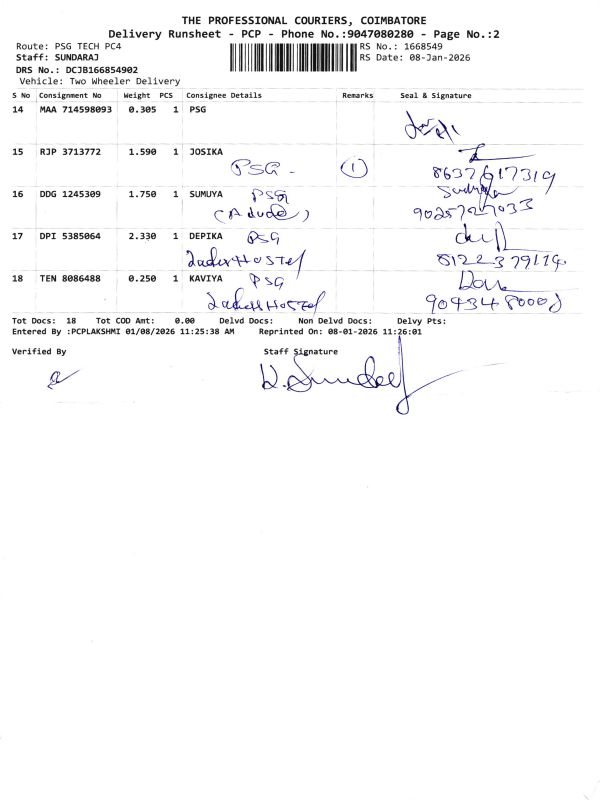 THE PROFESSIONAL COURIERS, COIMBATORE
Delivery Runsheet - PCP - Phone No.:9047080280 - Page No.:2
Route: PSG TECH PC4
RS No.: 1668549
Staff: SUNDARAJ
RS Date: 08-Jan-2026
DRS No.: DCJB166854902
Vehicle: Two Wheeler Delivery
S No Consignment No Weight PCS Consignee Details Remarks Seal & Signature
14 MAA 714598093 0.305 1 PSG
15 RJP 3713772 1.590 1 JOSIKA
PSG - 1 8637617319
16 DDG 1245309 1.750 1 SUMUYA PSG Sumuya
9025727033
17 DPI 5385064 2.330 1 DEPIKA PSG
HOSTel 8122379114
18 TEN 8086488 0.250 1 KAVIYA PSG
HOSTel 9043480000
Tot Docs: 18 Tot COD Amt: 0.00 Delvd Docs: Non Delvd Docs: Delvy Pts:
Entered By :PCPLAKSHMI 01/08/2026 11:25:38 AM Reprinted On: 08-01-2026 11:26:01
Verified By Staff Signature